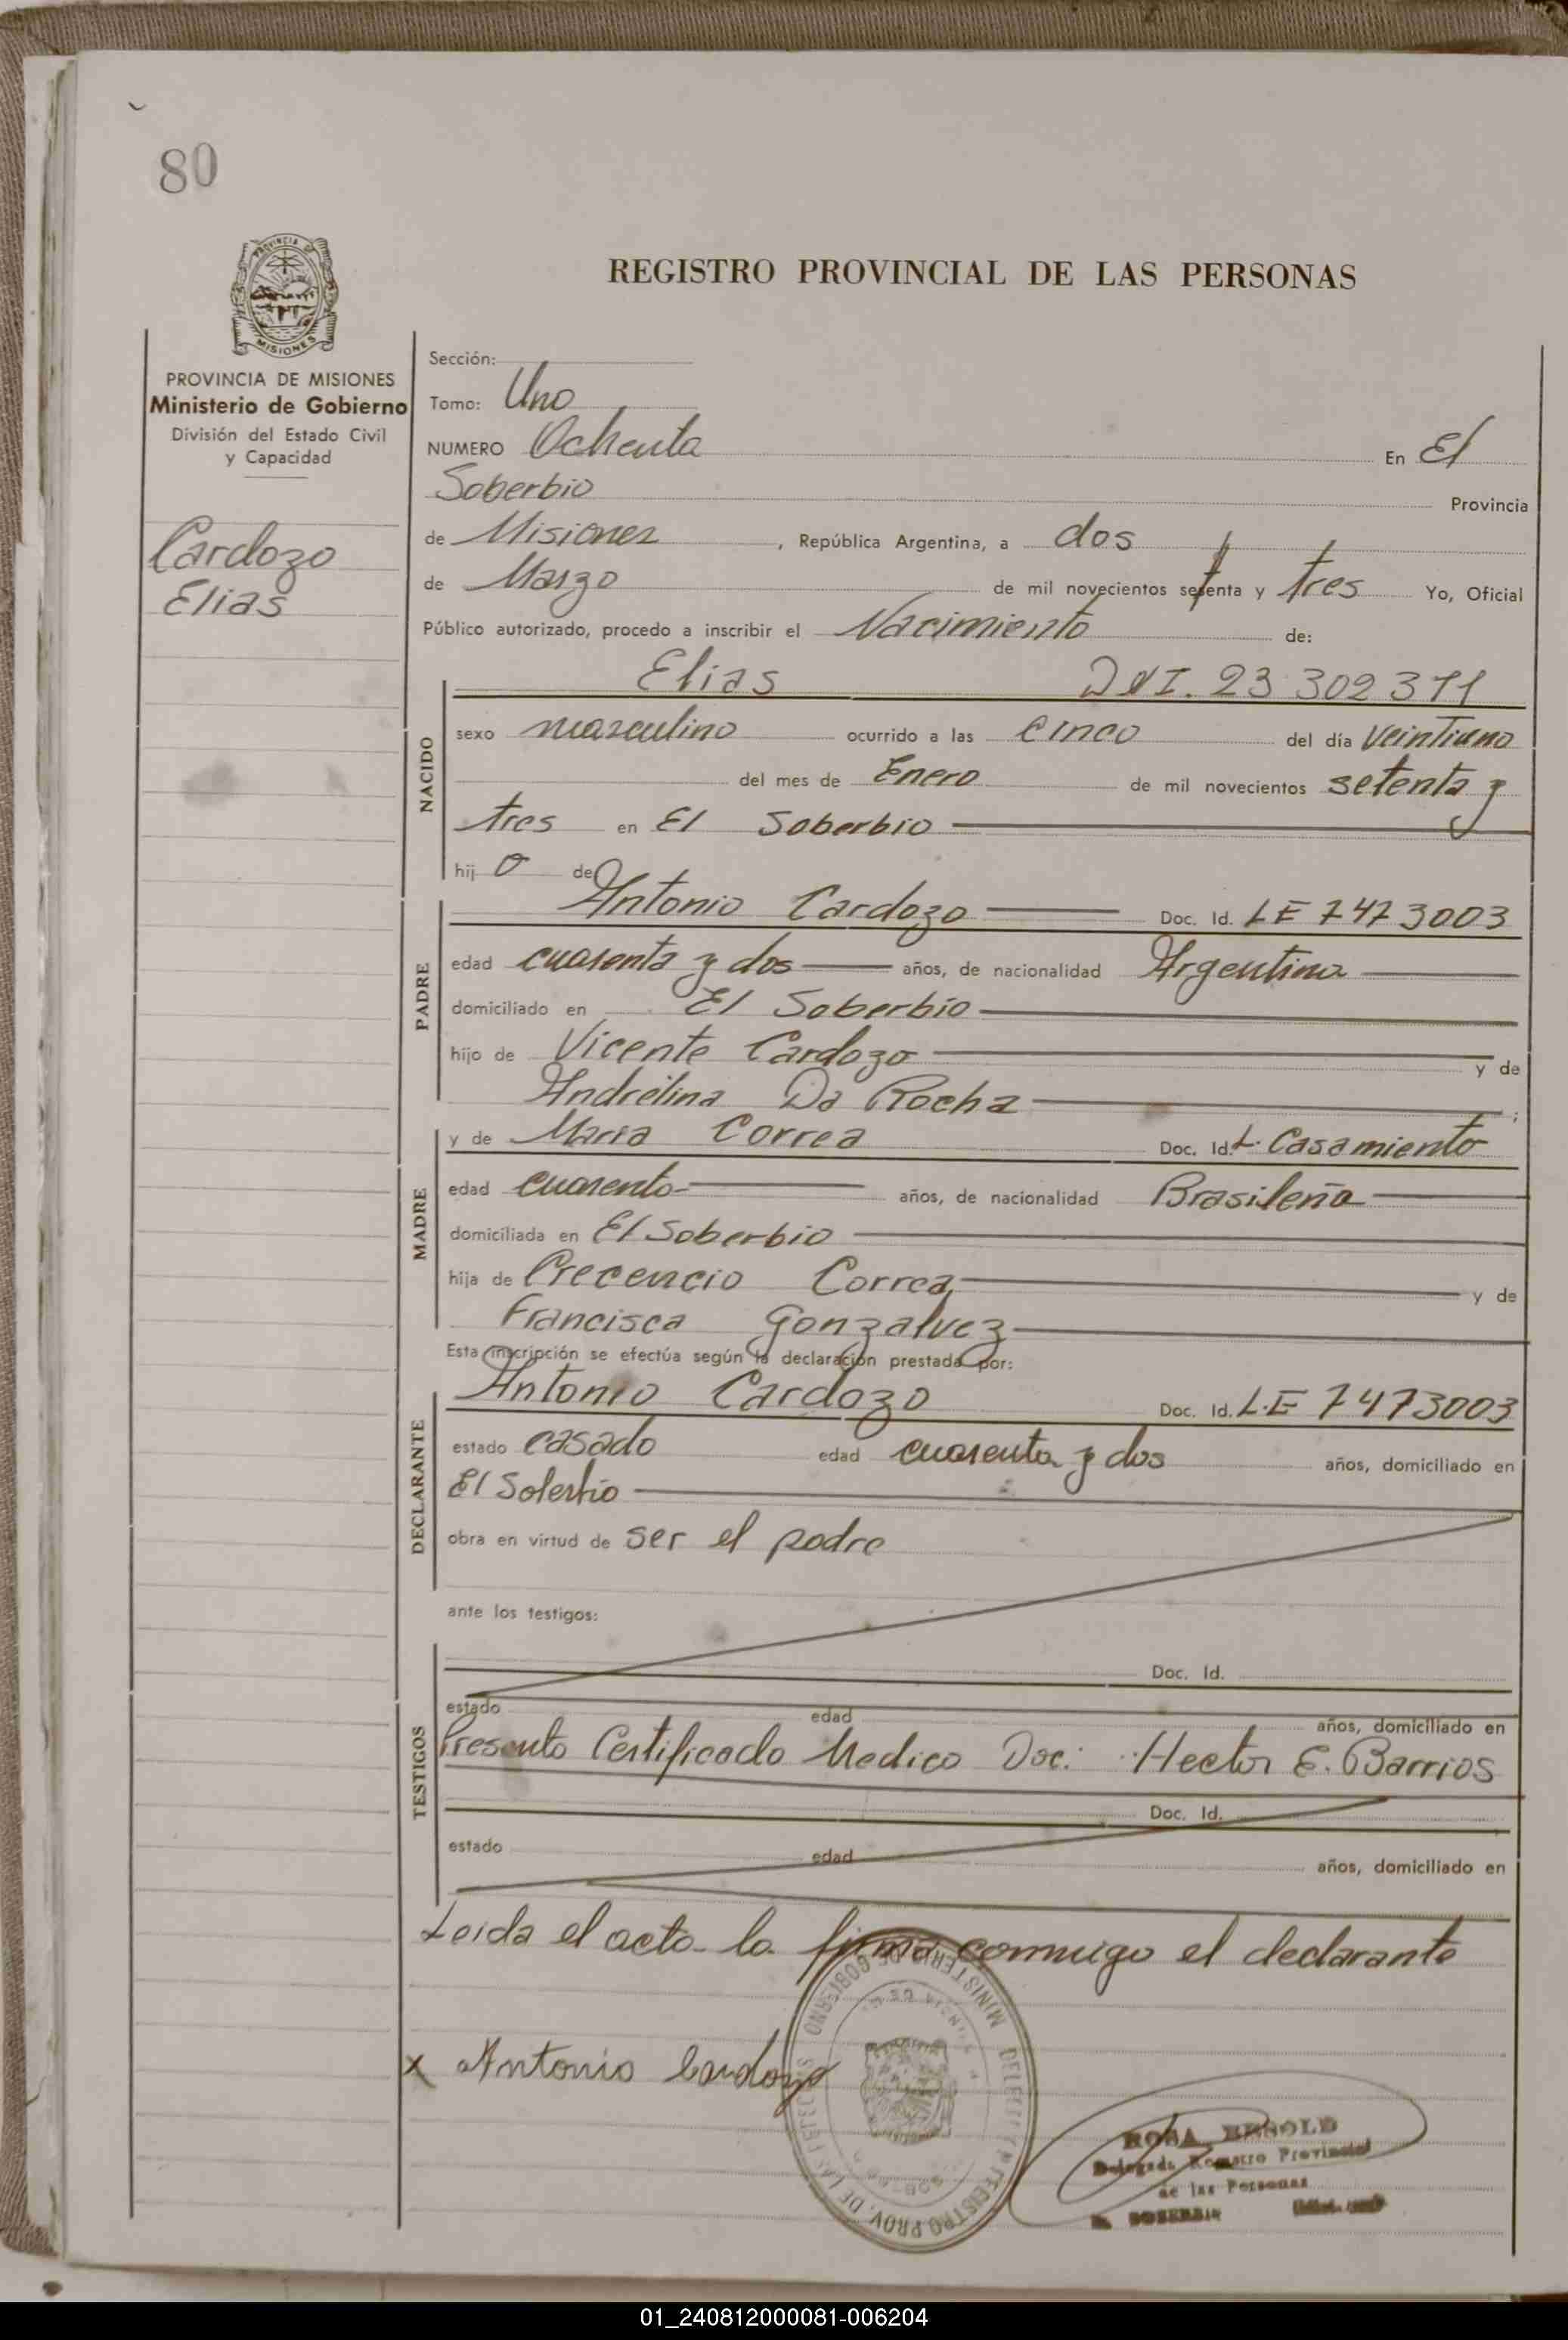 80
REGISTRO PROVINCIAL DE LAS PERSONAS
PROVINCIA DE
MISIONES
PROVINCIA DE MISIONES
Ministerio de Gobierno
División del Estado Civil
y Capacidad
Cardozo
Elias
Sección:
Tomo: Uno
NUMERO Ochenta En El
Soberbio Provincia
de Misiones, República Argentina, a dos
de Marzo de mil novecientos setenta y tres Yo, Oficial
Público autorizado, procedo a inscribir el Nacimiento de:
Elias DNI. 23 302 311
NACIDO
sexo masculino ocurrido a las cinco del día veintiuno
del mes de Enero de mil novecientos setenta y
tres en El Soberbio
hij o de
PADRE
Antonio Cardozo Doc. Id. LE 7473003
edad cuarenta y dos años, de nacionalidad Argentina
domiciliado en El Soberbio
hijo de Vicente Cardozo y de
Andrelina Da Rocha ;
MADRE
y de Maria Correa Doc. Id. L. Casamiento
edad cuarenta años, de nacionalidad Brasileña
domiciliada en El Soberbio
hija de Precencio Correa y de
Francisca Gonzalvez
Esta inscripción se efectúa según la declaración prestada por:
DECLARANTE
Antonio Cardozo Doc. Id. L.E 7473003
estado casado edad cuarenta y dos años, domiciliado en
El Soberbio
obra en virtud de ser el padre
ante los testigos:
TESTIGOS
Doc. Id.
estado edad años, domiciliado en
Presento Certificado Medico Doc: Hector E. Barrios
Doc. Id.
estado edad años, domiciliado en
Leida el acta la firma conmigo el declarante
x Antonio Cardozo
MINISTERIO DE GOBIERNO
REGISTRO PROV. DE LAS
ROSA
Delegada Registro Provincial
de las Personas
SOBERBIO
01_240812000081-006204